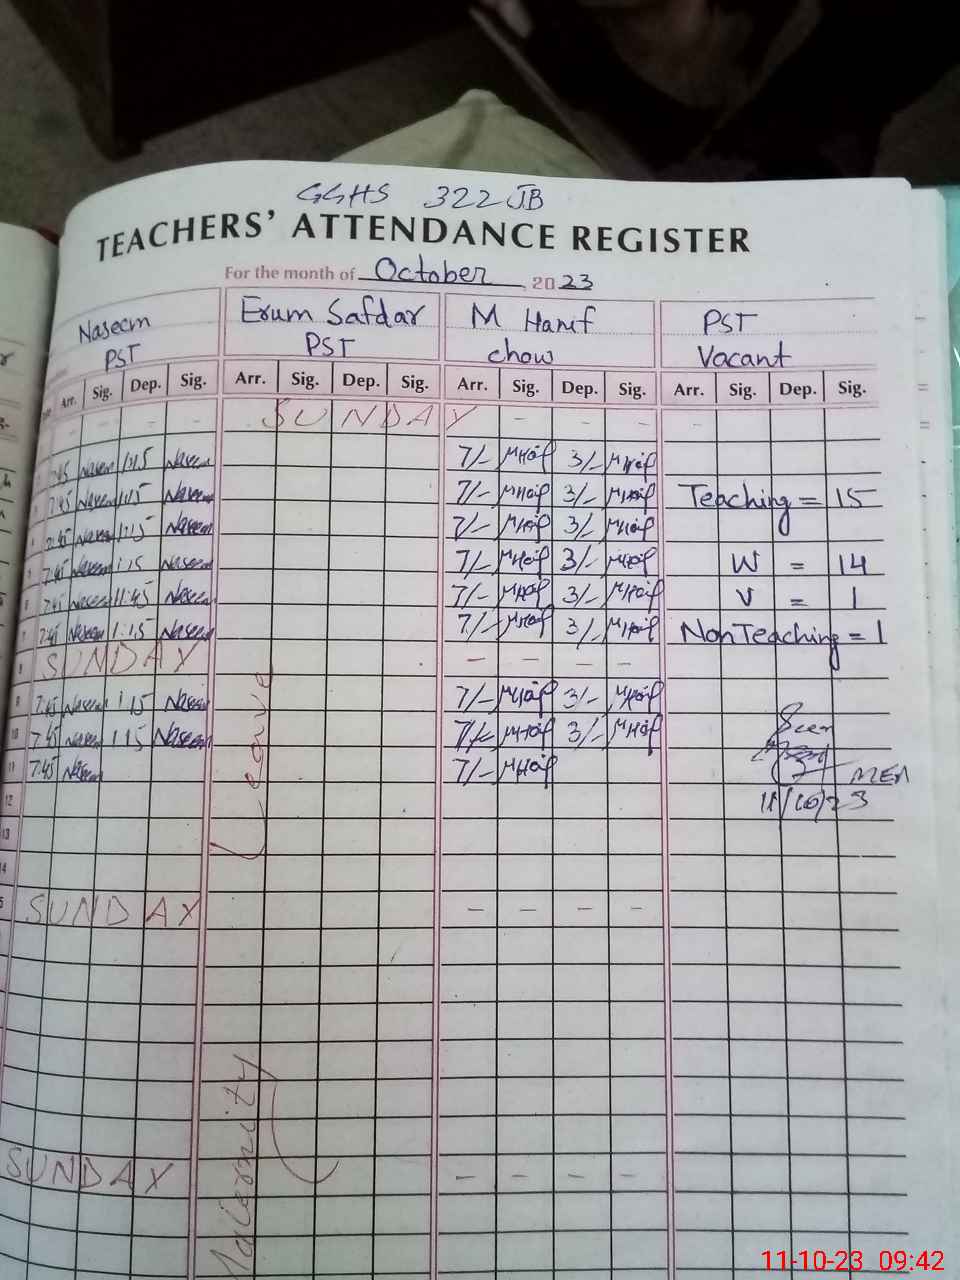 GGHS 322 JB
TEACHERS' ATTENDANCE REGISTER
For the month of October, 2023
Naseem Erum Safdar M Hanif PST
PST PST chow Vacant
Arr. Sig. Dep. Sig. Arr. Sig. Dep. Sig. Arr. Sig. Dep. Sig. Arr. Sig. Dep. Sig.
SUNDAY - - - - -
7:45 Naseem 1:15 Naseem 7/- MHaif 3/- MHaif
7:45 Naseem 1:15 Naseem 7/- MHaif 3/- MHaif Teaching = 15
7:45 Naseem 1:15 Naseem 7/- MHaif 3/- MHaif
7:45 Naseem 1:15 Naseem 7/- MHaif 3/- MHaif W = 14
7:45 Naseem 11:45 Naseem 7/- MHaif 3/- MHaif V = 1
7 7:45 Naseem 1:15 Naseem 7/- MHaif 3/- MHaif Non Teaching = 1
8 SUNDAY - - - -
9 7:45 Naseem 1:15 Naseem 7/- MHaif 3/- MHaif
10 7:45 Naseem 1:15 Naseem 7/- MHaif 3/- MHaif Seen
11 7:45 Naseem 7/- MHaif MEA
12 11/10/23
13
14
5 SUNDAY - - - -
SUNDAY - - - -
Maternity Leave
11-10-23 09:42